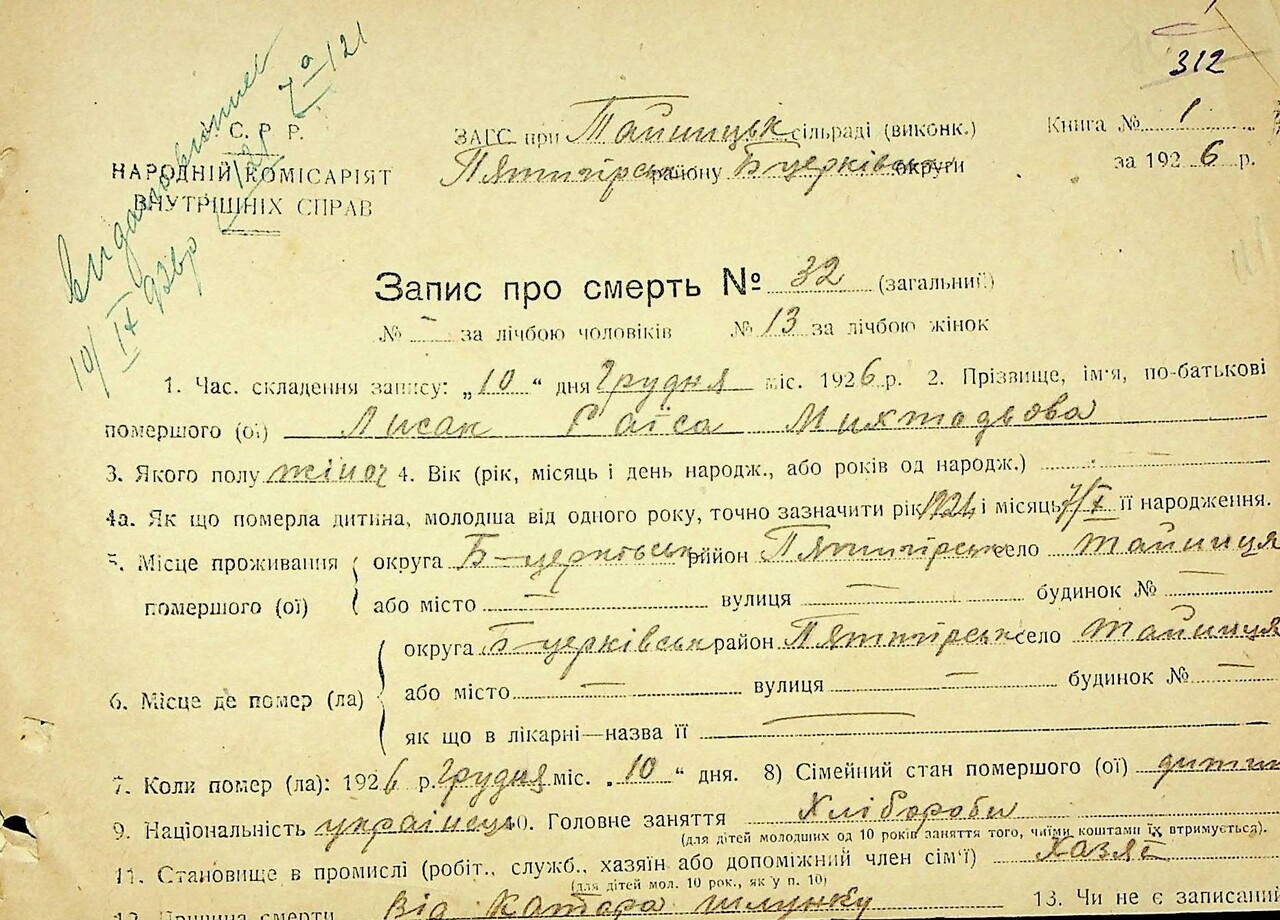 312
С. Р Р.
НАРОДНІЙ КОМІСАРІЯТ
ВНУТРІШНІХ СПРАВ
10/IX
ЗАГС при Тайницьк сільраді (виконк.)
Пятигірськ району Б церківськ округи
Книга № 1
за 1926 р.
Запис про смерть № 32 (загальний)
№ - за лічбою чоловіків № 13 за лічбою жінок
1. Час складення запису: „10“ дня Грудня міс. 1926 р. 2. Прізвище, ім'я, по-батькові
помершого (ої) Лисак Раїса
3. Якого полу жіноч 4. Вік (рік, місяць і день народж., або років од народж.) —
4а. Як що померла дитина, молодша від одного року, точно зазначити рік і місяць 7/X її народження.
5. Місце проживання помершого (ої) округа Б-церковськ район Пятигірськ село Тайниця
або місто — вулиця — будинок № —
6. Місце де помер (ла) округа Б-церківськ район Пятигірськ село Тайниця
або місто — вулиця — будинок № —
як що в лікарні—назва її —
7. Коли помер (ла): 1926 р. Грудня міс. „10“ дня. 8) Сімейний стан помершого (ої)
9. Національність українець 10. Головне заняття Хлібороби
(для дітей молодших од 10 років заняття того, чиїми коштами їх втримується).
11. Становище в промислі (робіт., служб., хазяїн або допоміжний член сім'ї)
(для дітей мол. 10 рок., як у п. 10)
12. Причина смерти Від Катара шлунку 13. Чи не є записаний